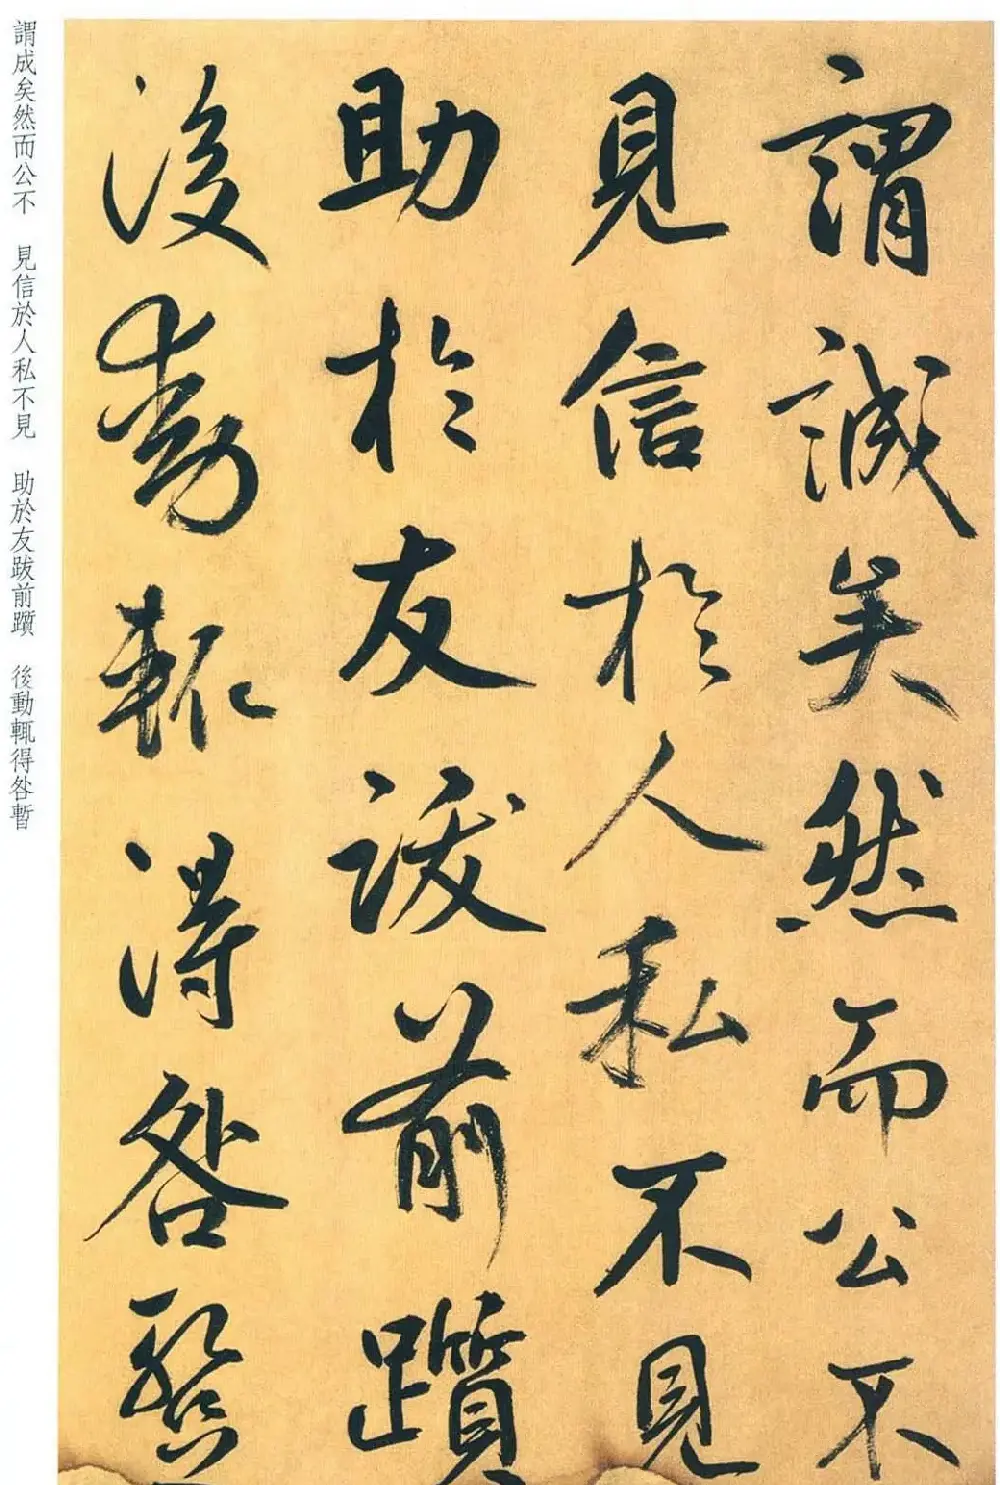 謂誠矣然而公不
見信於人私不見
助於友跋前躓
後動輒得咎暫
謂成矣然而公不　見信於人私不見　助於友跋前躓　後動輒得咎暫